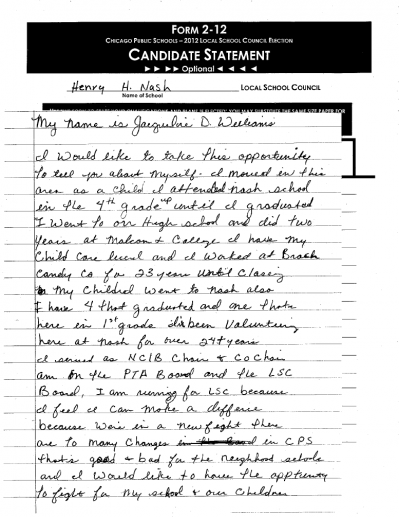 FORM 2-12
CHICAGO PUBLIC SCHOOLS – 2012 LOCAL SCHOOL COUNCIL ELECTION
CANDIDATE STATEMENT
►►►► Optional ◄◄◄◄
Henry H. Nash LOCAL SCHOOL COUNCIL
Name of School
THE SAME SIZE PAPER FOR
My name is Jacqueline D. Williams
I would like to take this opportunity
to tell you about Myself. I moved in this
area as a child I attended Nash school
in the 4th grade until I graduated
I went to our High school and did two
years at Malcom X College I have my
Child Care level and I worked at Brach
Candy Co for 23 years until closing
My Children went to Nash also
I have 4 that graduated and one thats
here in 1st grade been Volunteering
here at Nash for over 24+ years
I served as NCLB Chair & CoChair
am on the PTA Board and the LSC
Board, I am running for LSC because
I feel I can make a differnce
because we're in a new fight there
are to many changes in CPS
that's good & bad for the neighhod schools
and I would like to have the opptunity
to fight for my school & our Children